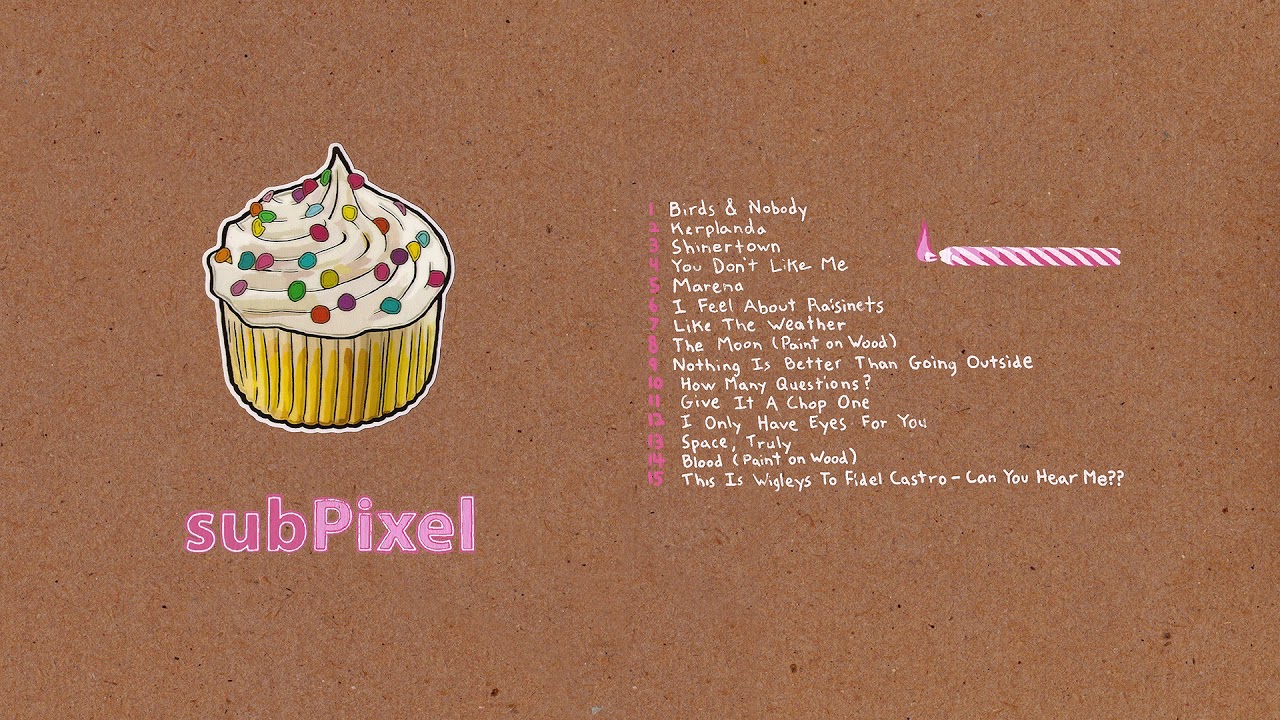 subPixel
1 Birds & Nobody
2 Kerplanda
3 Shinertown
4 You Don't Like Me
5 Marena
6 I Feel About Raisinets
7 Like The Weather
8 The Moon (Paint on Wood)
9 Nothing Is Better Than Going Outside
10 How Many Questions?
11 Give It A Chop One
12 I Only Have Eyes For You
13 Space, Truly
14 Blood (Paint on Wood)
15 This Is Wigleys To Fidel Castro - Can You Hear Me??